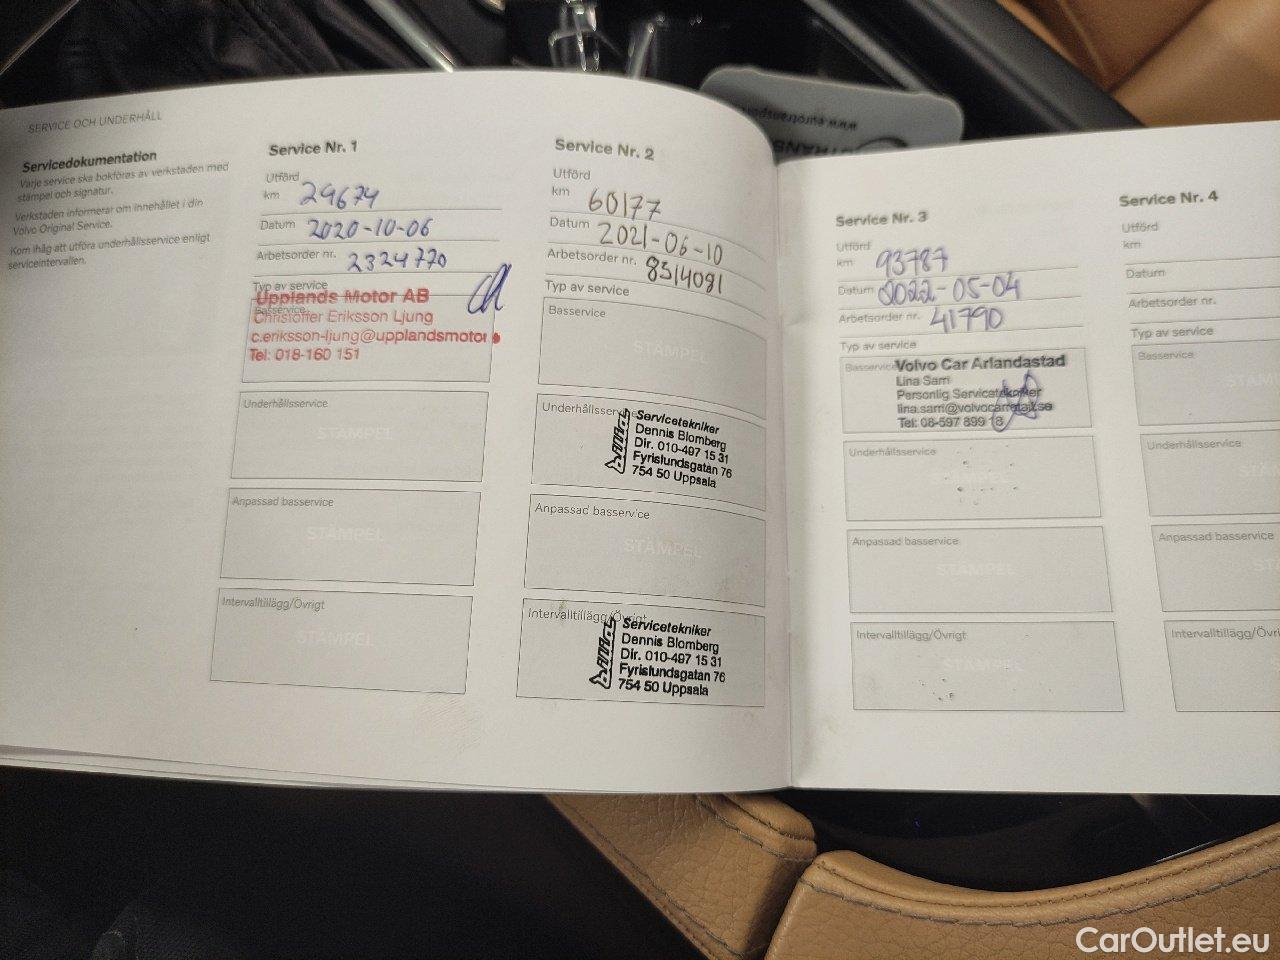 SERVICE OCH UNDERHÅLL
Servicedokumentation
Varje service ska bokföras av verkstaden med
stämpel och signatur.
Verkstaden informerar om innehållet i din
Volvo Original Service.
Kom ihåg att utföra underhållsservice enligt
serviceintervallen.
Service Nr. 1
Utförd
km 29674
Datum 2020-10-06
Arbetsorder nr. 2324770
Typ av service
Basservice
Upplands Motor AB
Christoffer Eriksson Ljung
c.eriksson-ljung@upplandsmotor
Tel: 018-160 151
Underhållsservice
STÄMPEL
Anpassad basservice
STÄMPEL
Intervalltillägg/Övrigt
STÄMPEL
Service Nr. 2
Utförd
km 60177
Datum 2021-06-10
Arbetsorder nr. 8314091
Typ av service
Basservice
STÄMPEL
Underhållsservice
Bilia
Servicetekniker
Dennis Blomberg
Dir. 010-497 15 31
Fyrislundsgatan 76
754 50 Uppsala
Anpassad basservice
STÄMPEL
Intervalltillägg/Övrigt
Bilia
Servicetekniker
Dennis Blomberg
Dir. 010-497 15 31
Fyrislundsgatan 76
754 50 Uppsala
Service Nr. 3
Utförd
km 93787
Datum 2022-05-04
Arbetsorder nr. 41790
Typ av service
Basservice
Volvo Car Arlandastad
Lina Sarri
Personlig Servicetekniker
Tel: 08-597 899 18
Underhållsservice
Anpassad basservice
STÄMPEL
Intervalltillägg/Övrigt
STÄMPEL
Service Nr. 4
Utförd
km
Datum
Arbetsorder nr.
Typ av service
Basservice
STÄM
Underhållsservice
STÄ
Anpassad basservice
ST
Intervalltillägg/Övri
CarOutlet.eu